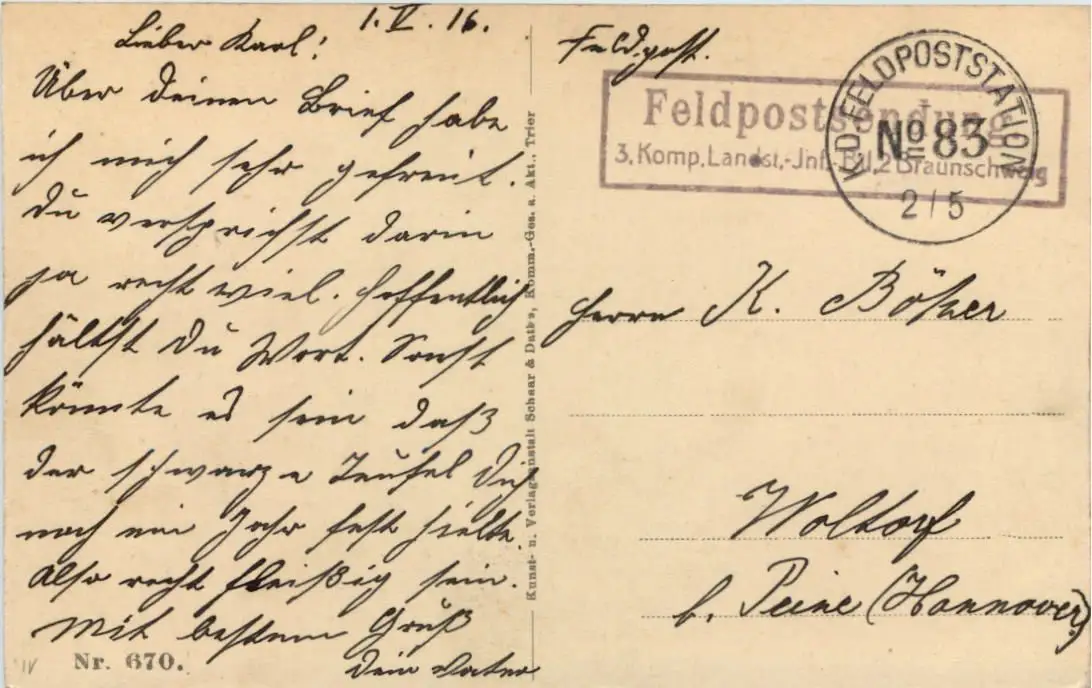 1. V. 16.
Lieber Karl!
Über deinen Brief habe
ich mich sehr gefreut.
Du versprichst darin
ja recht viel. Hoffentlich
hältst Du Wort. Sonst
könnte es sein daß
der schwarze Teufel Dich
noch ein Jahr fest hielte.
Also recht fleißig sein.
Mit bestem Gruß
Dein Vater
Nr. 670.
Kunst- u. Verlagsanstalt Schaar & Dathe, Komm.-Ges. a. Akt., Trier
Feldpost.
Feldpostsendung
3. Komp. Landst.-Inf.-Btl. 2 Braunschweig
K.D. FELDPOSTSTATION
No 83
2/5
Herrn K. Böker
Woltorf
b. Peine (Hannover)